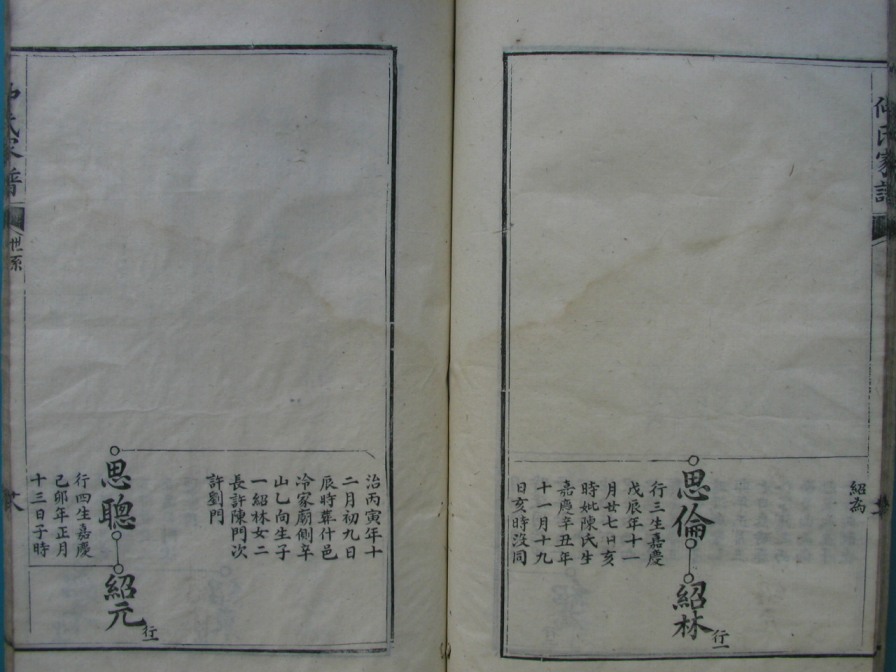 紹為
思倫
行三生嘉慶
戊辰年十一
月廿七日亥
時妣陳氏生
嘉慶辛丑年
十一月十九
日亥時沒同
紹林
行一
治丙寅年十
二月初九日
辰時葬什邑
冷家廟側辛
山乙向生子
一紹林女二
長許陳門次
許劉門
思聰
行四生嘉慶
己卯年正月
十三日子時
紹元
行一
仲氏家譜
世系